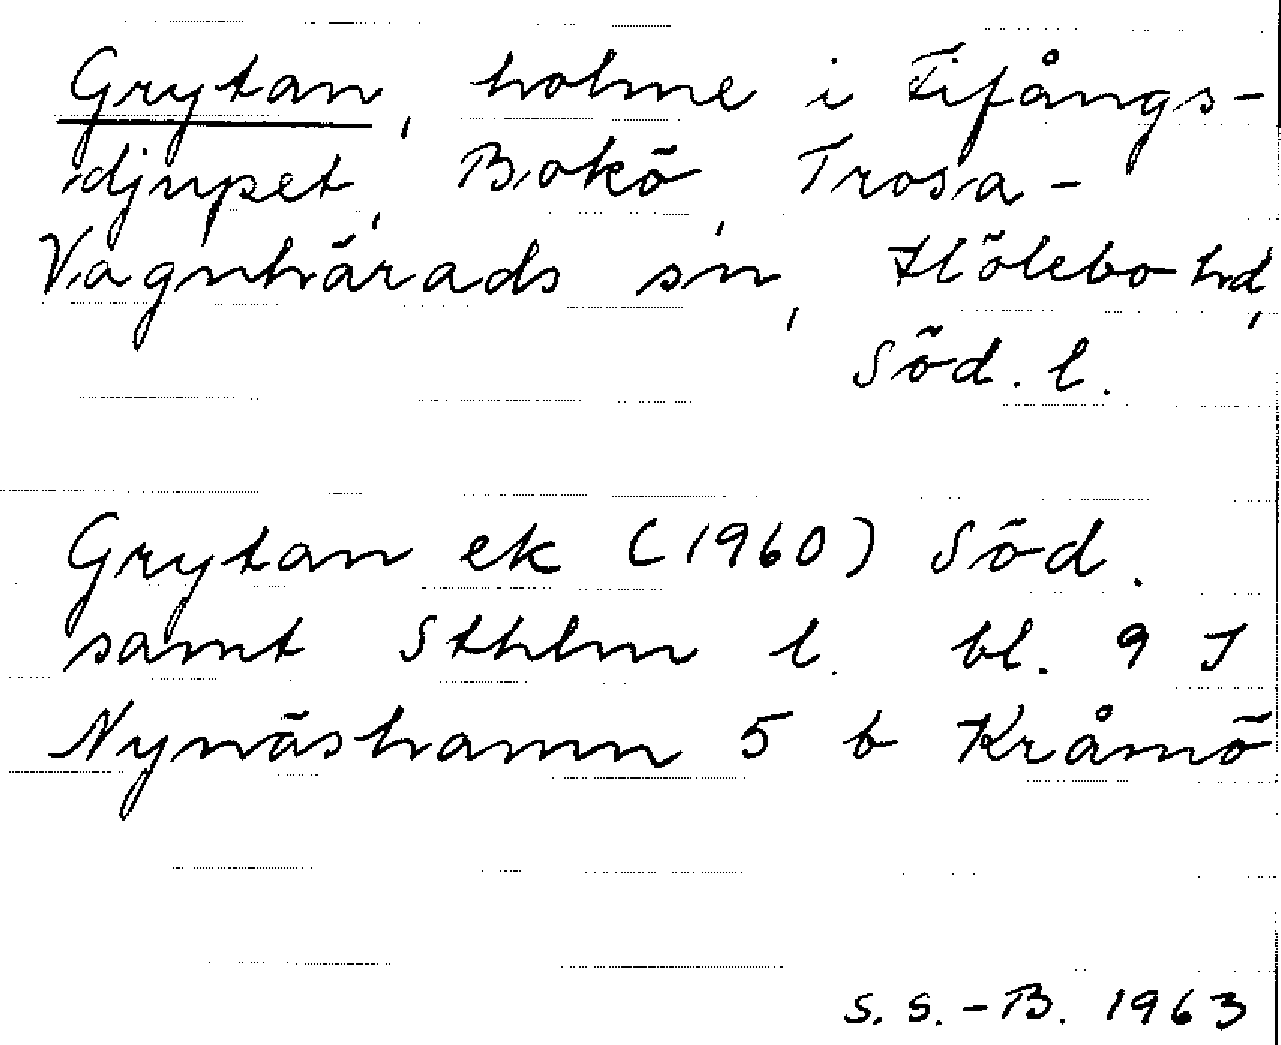 Grytan, holme i Fifångs-
djupet, Bokö, Trosa-
Vagnhärads sn, Hölebo hd,
Söd. l.
Grytan ek (1960) Söd.
samt Sthlm l. bl. 9 I
Nynäshamn 5 b Kråmö
S. S.-B. 1963